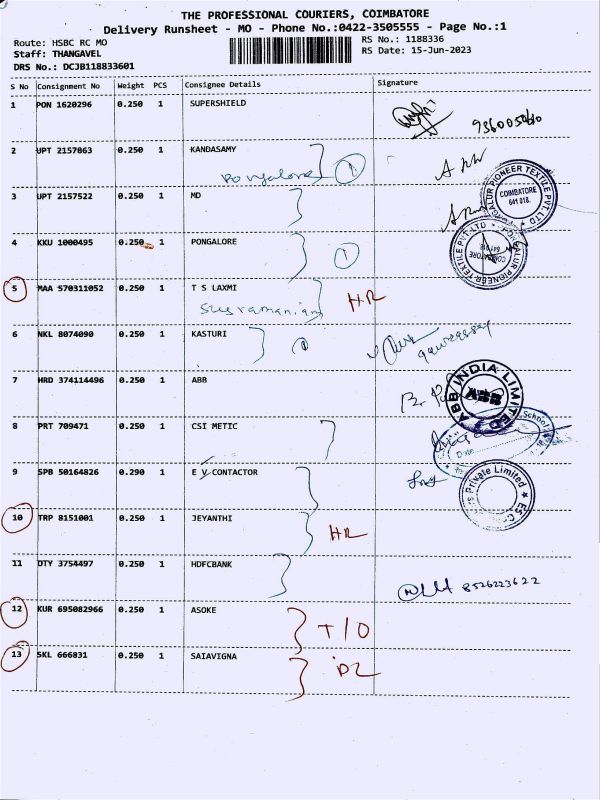 THE PROFESSIONAL COURIERS, COIMBATORE
Delivery Runsheet - MO - Phone No.:0422-3505555 - Page No.:1
Route: HSBC RC MO
RS No.: 1188336
Staff: THANGAVEL
RS Date: 15-Jun-2023
DRS No.: DCJB118833601
S No Consignment No Weight PCS Consignee Details Signature
1 PON 1620296 0.250 1 SUPERSHIELD
2 UPT 2157863 0.250 1 KANDASAMY
Pongalore 1
3 UPT 2157522 0.250 1 MD
COIMBATORE
641 018.
4 KKU 1000495 0.250 1 PONGALORE
1
5 MAA 570311052 0.250 1 T S LAXMI
HR
6 NKL 8074090 0.250 1 KASTURI
7 HRD 374114496 0.250 1 ABB
ABB INDIA LIMITED
8 PRT 709471 0.250 1 CSI METIC
School
Date
9 SPB 50164826 0.290 1 E V CONTACTOR
Private Limited
10 TRP 8151001 0.250 1 JEYANTHI
HR
11 DTY 3754497 0.250 1 HDFCBANK
8526223622
12 KUR 695082966 0.250 1 ASOKE
T/O
13 SKL 666831 0.250 1 SAIAVIGNA
DL